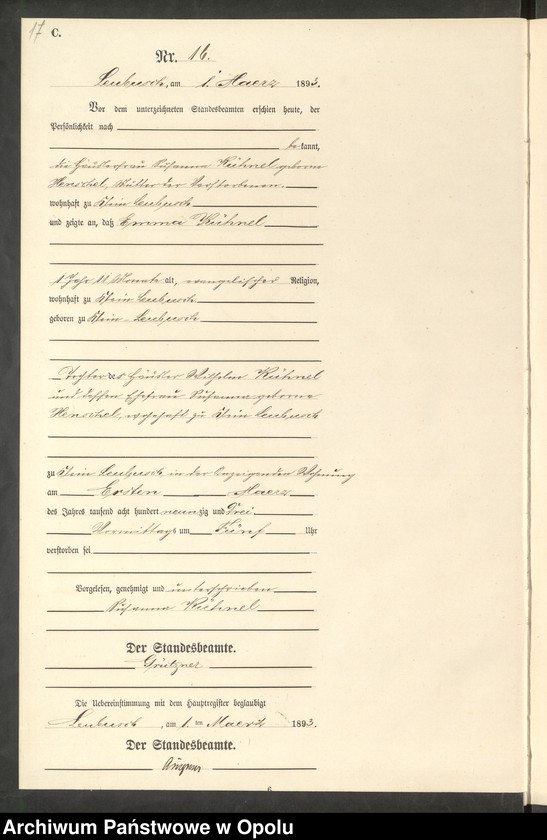 17 C.
Nr. 16.
Leubusch, am 1. Maerz 1893.
Vor dem unterzeichneten Standesbeamten erschien heute, der
Persönlichkeit nach
be kannt,
die Häuslerfrau Susanna Kühnel geborne
Henschel, Mutter der Verstorbenen.
wohnhaft zu Klein Leubusch
und zeigte an, daß Emma Kühnel
1 Jahr 11 Monate alt, evangelischer Religion,
wohnhaft zu Klein Leubusch
geboren zu Klein-Leubusch
Tochter des Häusler Wilhelm Kühnel
und dessen Ehefrau Susanna geborne
Henschel, wohnhaft zu Klein Leubusch
zu Klein Leubusch in der Anzeigenden Wohnung
am Ersten Maerz
des Jahres tausend acht hundert neunzig und Drei
Vormittags um Fünf Uhr
verstorben sei
Vorgelesen, genehmigt und unterschrieben
Susanna Kühnel
Der Standesbeamte.
Grützner
Die Uebereinstimmung mit dem Hauptregister beglaubigt
Leubusch, am 1 ten Maerz 1893.
Der Standesbeamte.
6
Archiwum Państwowe w Opolu